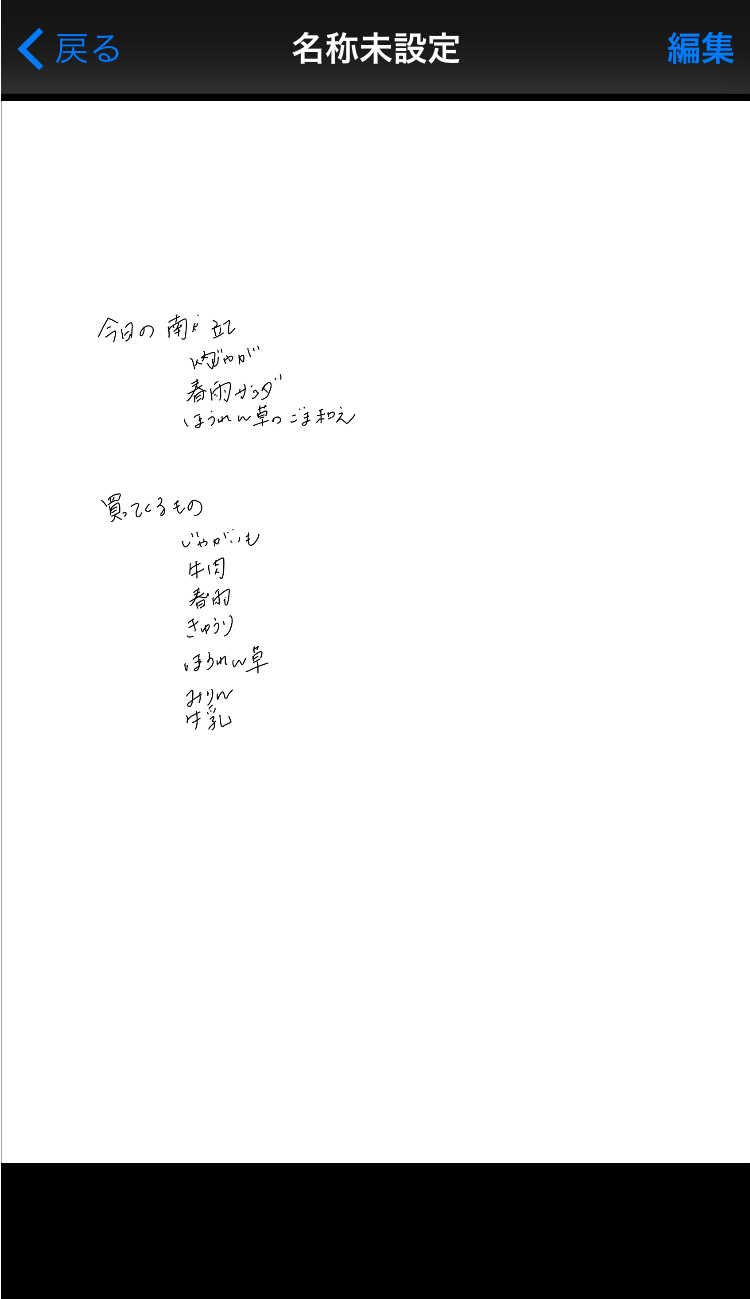 戻る 名称未設定 編集
今日の献立
肉じゃが
春雨サラダ
ほうれん草のごま和え
買ってくるもの
じゃがいも
牛肉
春雨
きゅうり
ほうれん草
みりん
牛乳